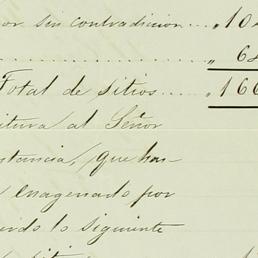 or sin contradicion .. " 10
........ " 6
Total de sitios ..... " 166
itura al Señor
stancia, que has-
enagenado por
lo siguiente